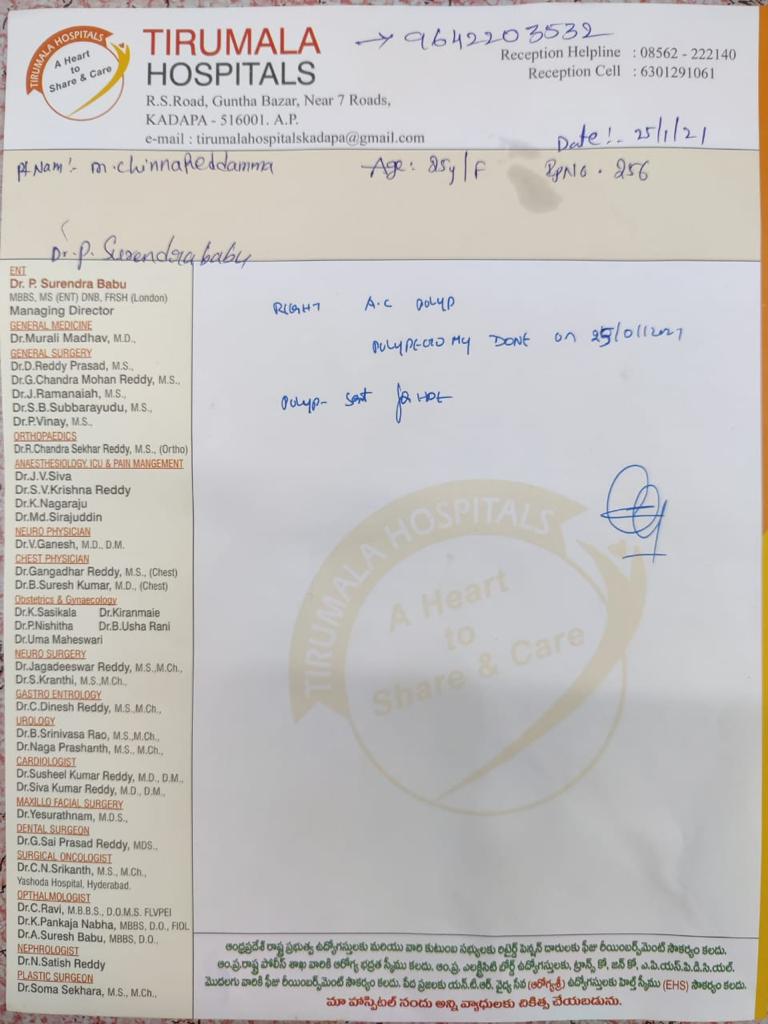 TIRUMALA HOSPITALS
A Heart
to
Share & Care
TIRUMALA
HOSPITALS
R.S.Road, Guntha Bazar, Near 7 Roads,
KADAPA - 516001. A.P.
e-mail : tirumalahospitalskadapa@gmail.com
→ 9642203532
Reception Helpline : 08562 - 222140
Reception Cell : 6301291061
Date:- 25/1/21
Pt Nam:- m.chinnaReddamma Age: 25y/F RpNo. 256
Dr. P. Surendra babu
ENT
Dr. P. Surendra Babu
MBBS, MS (ENT) DNB, FRSH (London)
Managing Director
GENERAL MEDICINE
Dr.Murali Madhav, M.D.,
GENERAL SURGERY
Dr.D.Reddy Prasad, M.S.,
Dr.G.Chandra Mohan Reddy, M.S.,
Dr.J.Ramanaiah, M.S.,
Dr.S.B.Subbarayudu, M.S.,
Dr.P.Vinay, M.S.,
ORTHOPAEDICS
Dr.R.Chandra Sekhar Reddy, M.S., (Ortho)
ANAESTHESIOLOGY, ICU & PAIN MANGEMENT
Dr.J.V.Siva
Dr.S.V.Krishna Reddy
Dr.K.Nagaraju
Dr.Md.Sirajuddin
NEURO PHYSICIAN
Dr.V.Ganesh, M.D., D.M.
CHEST PHYSICIAN
Dr.Gangadhar Reddy, M.S., (Chest)
Dr.B.Suresh Kumar, M.D., (Chest)
Obstetrics & Gynaecology
Dr.K.Sasikala Dr.Kiranmaie
Dr.P.Nishitha Dr.B.Usha Rani
Dr.Uma Maheswari
NEURO SURGERY
Dr.Jagadeeswar Reddy, M.S.,M.Ch.,
Dr.S.Kranthi, M.S.,M.Ch.,
GASTRO ENTROLOGY
Dr.C.Dinesh Reddy, M.S.,M.Ch.,
UROLOGY
Dr.B.Srinivasa Rao, M.S., M.Ch.,
Dr.Naga Prashanth, M.S., M.Ch.,
CARDIOLOGIST
Dr.Susheel Kumar Reddy, M.D., D.M.,
Dr.Siva Kumar Reddy, M.D., D.M.,
MAXILLO FACIAL SURGERY
Dr.Yesurathnam, M.D.S.,
DENTAL SURGEON
Dr.G.Sai Prasad Reddy, MDS.,
SURGICAL ONCOLOGIST
Dr.C.N.Srikanth, M.S., M.Ch.,
Yashoda Hospital, Hyderabad.
OPTHALMOLOGIST
Dr.C.Ravi, M.B.B.S., D.O.M.S. FLVPEI
Dr.K.Pankaja Nabha, MBBS, D.O., FIOL
Dr.A.Suresh Babu, MBBS, D.O.,
NEPHROLOGIST
Dr.N.Satish Reddy
PLASTIC SURGEON
Dr.Soma Sekhara, M.S., M.Ch.,
RIGHT A.C polyp
polypectomy DONE on 25/01/2021
polyp- sent for HPE
TIRUMALA HOSPITALS
A Heart
to
Share & Care
ఆంధ్రప్రదేశ్ రాష్ట్ర ప్రభుత్వ ఉద్యోగస్తులకు మరియు వారి కుటుంబ సభ్యులకు రిటైర్డ్ పెన్షన్ దారులకు ఫీజు రీయింబర్స్‌మెంట్ సౌకర్యం కలదు.
ఆం.ప్ర.రాష్ట్ర పోలీస్ శాఖ వారికి ఆరోగ్య భద్రత స్కీము కలదు. ఆం.ప్ర. ఎలక్ట్రిసిటి బోర్డ్ ఉద్యోగస్తులకు, ట్రాన్స్ కో, జన్ కో, ఎ.పి.యస్.పి.డి.సి.యల్.
మొదలగు వారికి ఫీజు రీయింబర్స్‌మెంట్ సౌకర్యం కలదు. పేద ప్రజలకు యన్.టి.ఆర్. వైద్య సేవ (ఆరోగ్యశ్రీ) ఉద్యోగస్తులకు హెల్త్ స్కీము (EHS) సౌకర్యం కలదు.
మా హాస్పిటల్ నందు అన్ని వ్యాధులకు చికిత్స చేయబడును.